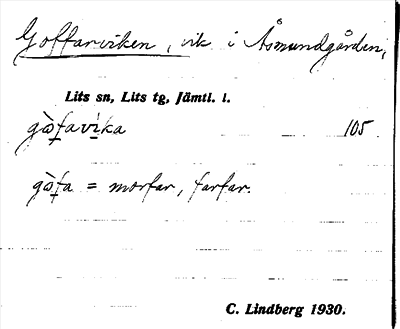 Goffarviken, vik i Åsmundgården,
Lits sn, Lits tg, Jämtl. l.
gòfavika 105.
gòfa = morfar, farfar.
C. Lindberg 1930.